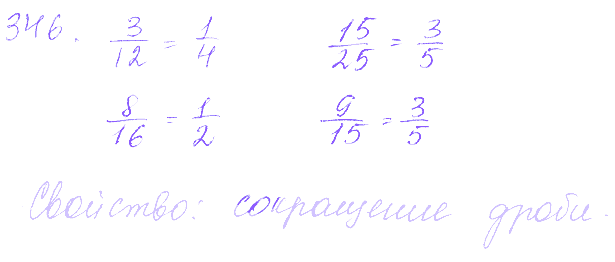 346. 3/12 = 1/4 15/25 = 3/5
8/16 = 1/2 9/15 = 3/5
Свойство: сокращение дроби.